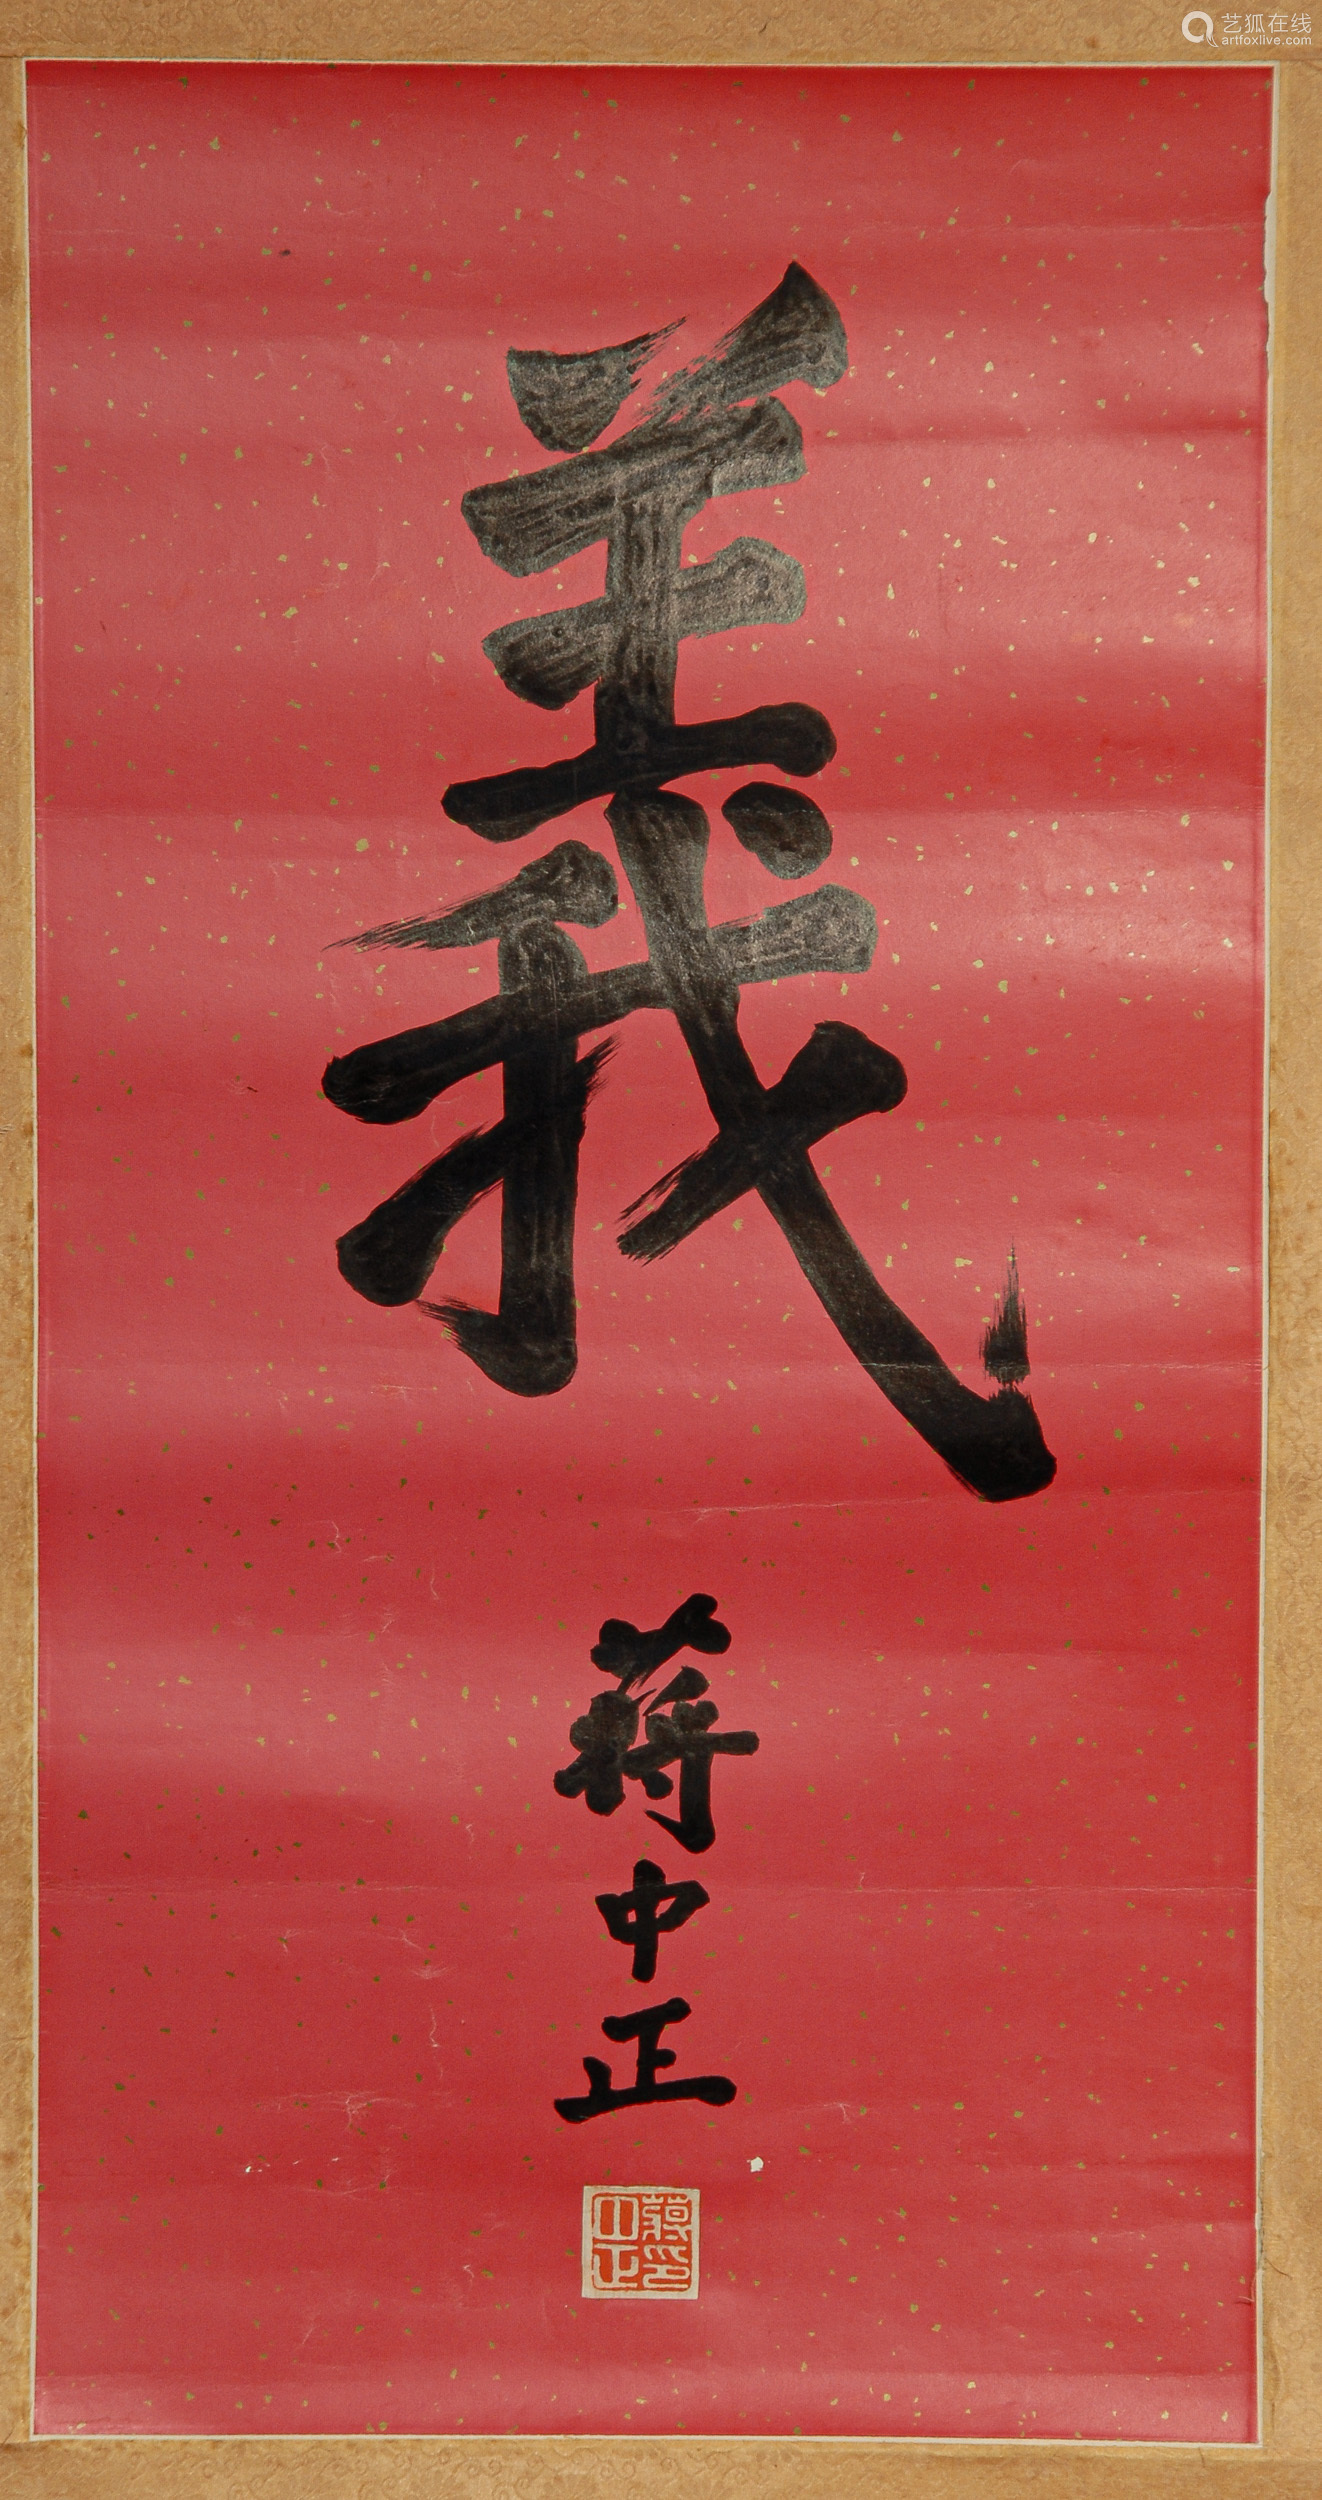 艺狐在线
artfoxlive.com
義
蔣中正
蔣印
中正